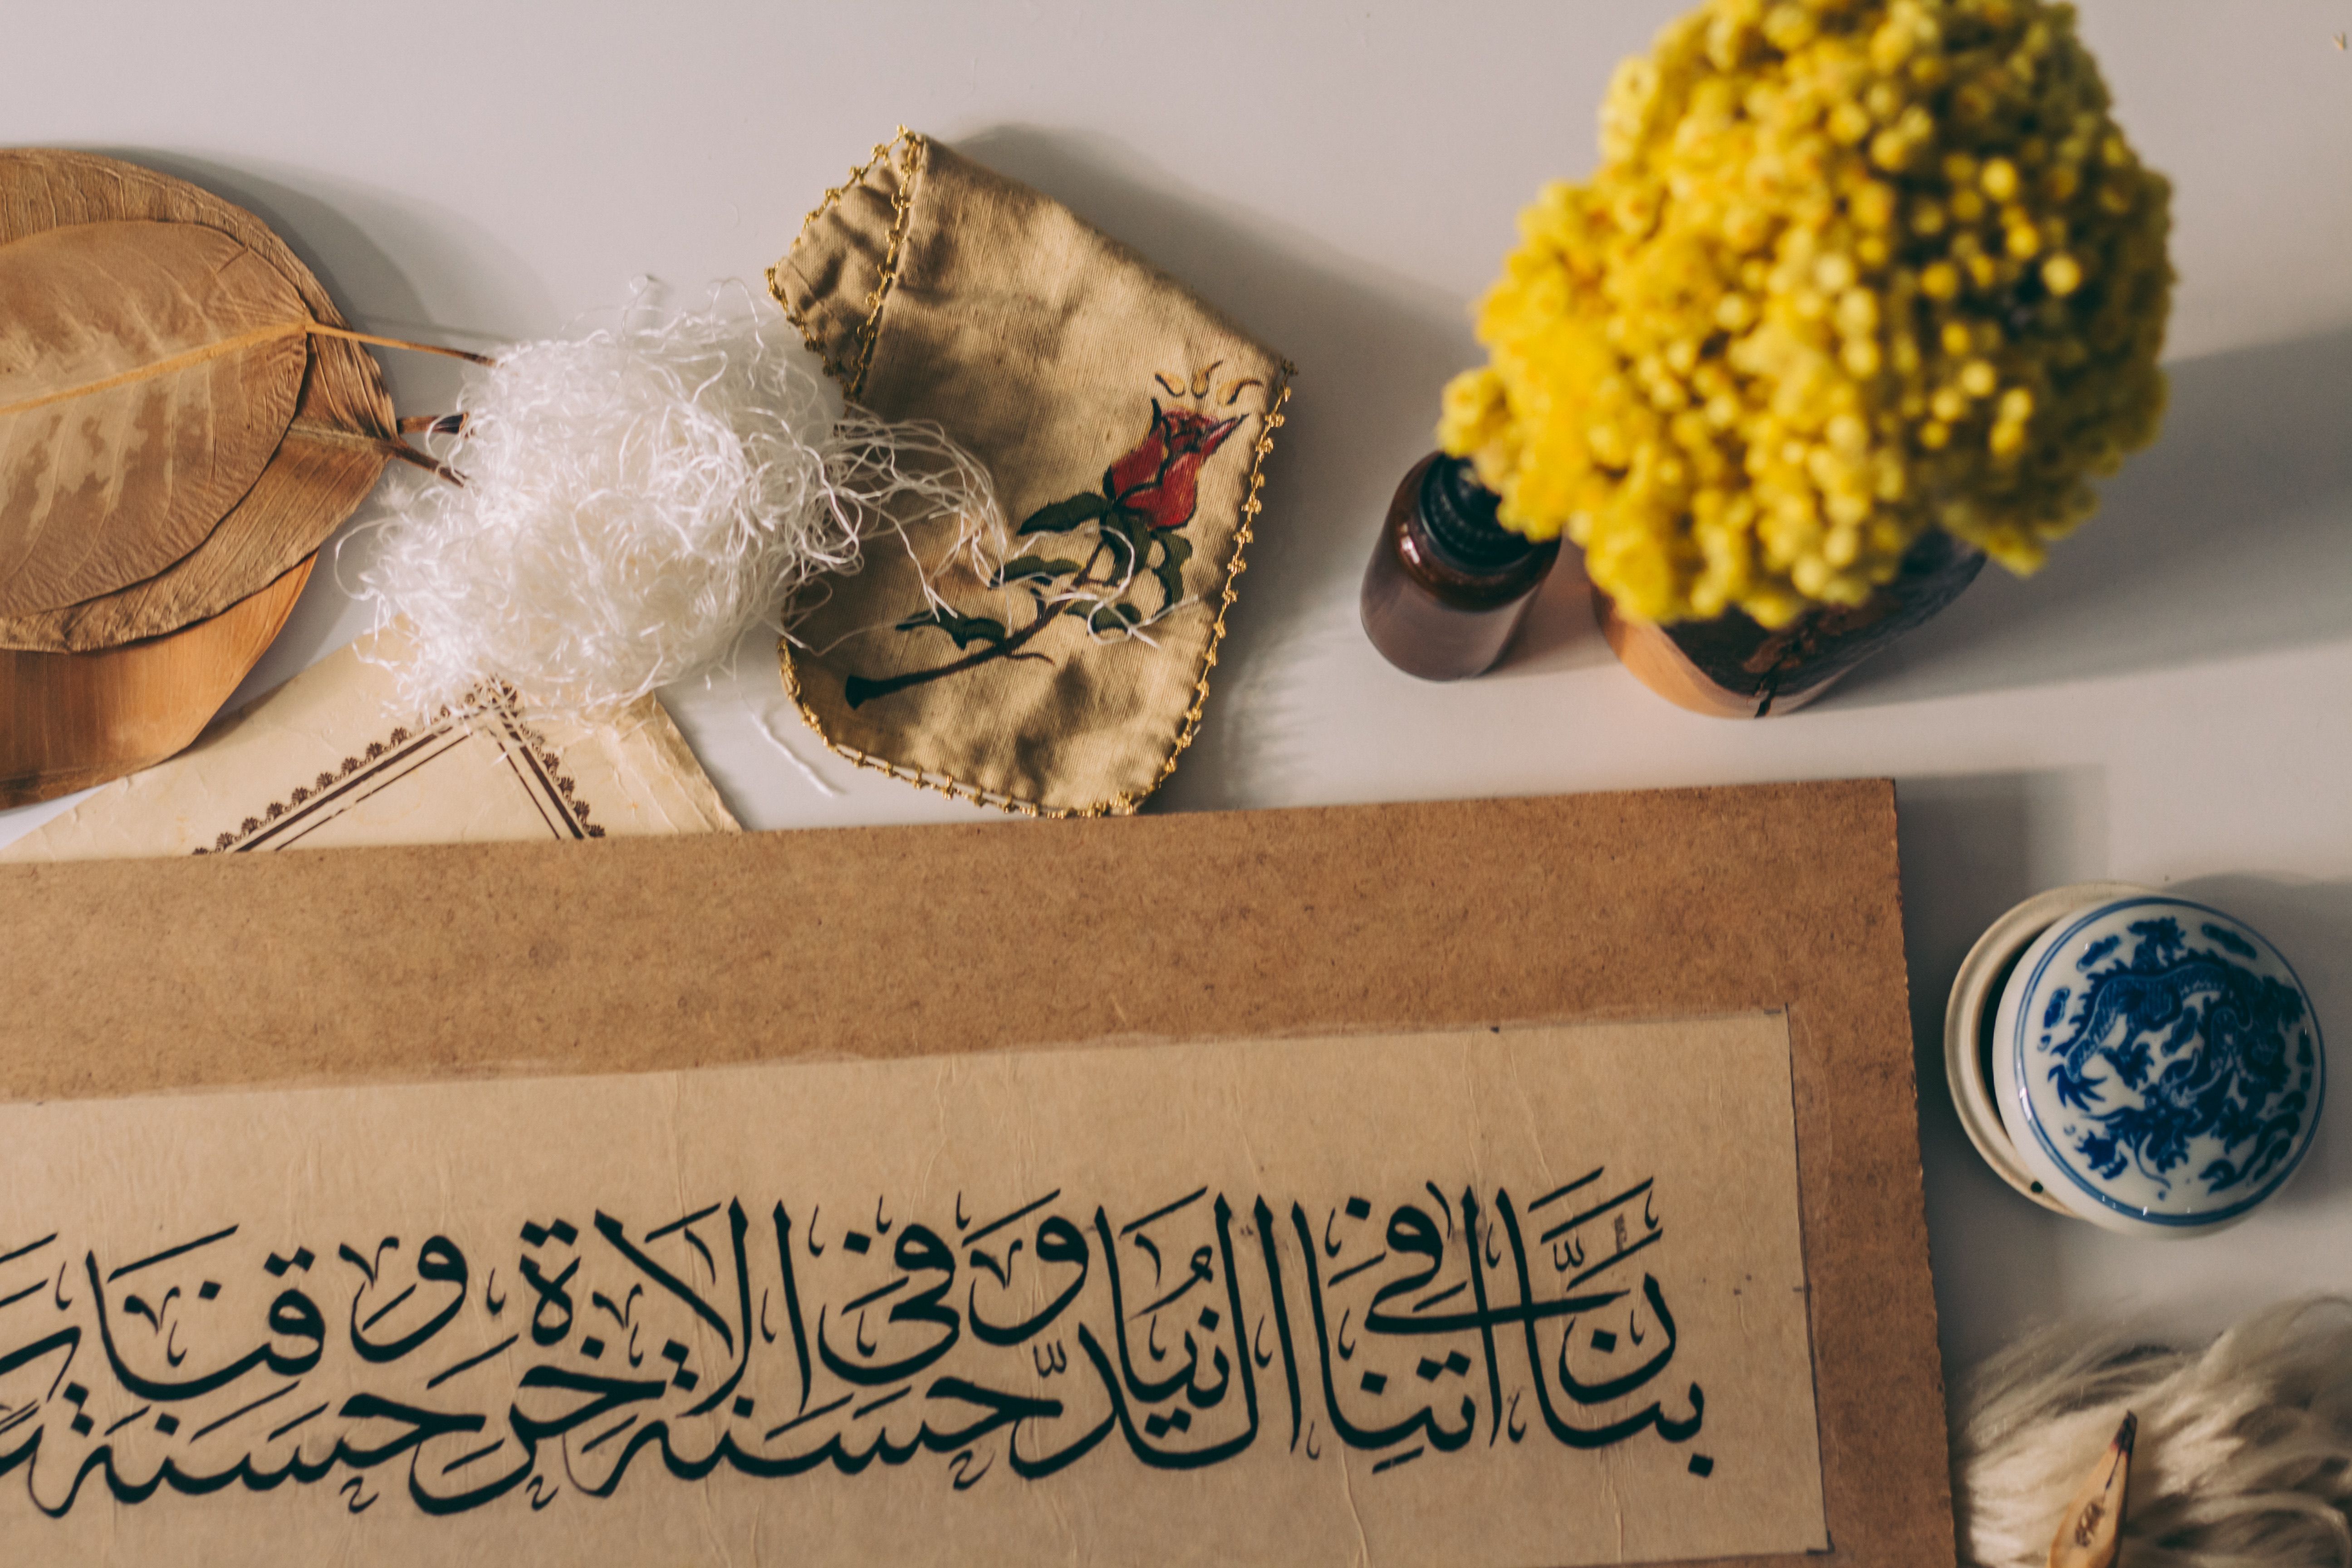 رَبَّنَا اتِنَا فِي الدُّنْيَا حَسَنَةً وَفِي الاخِرَةِ حَسَنَةً وَقِنَا